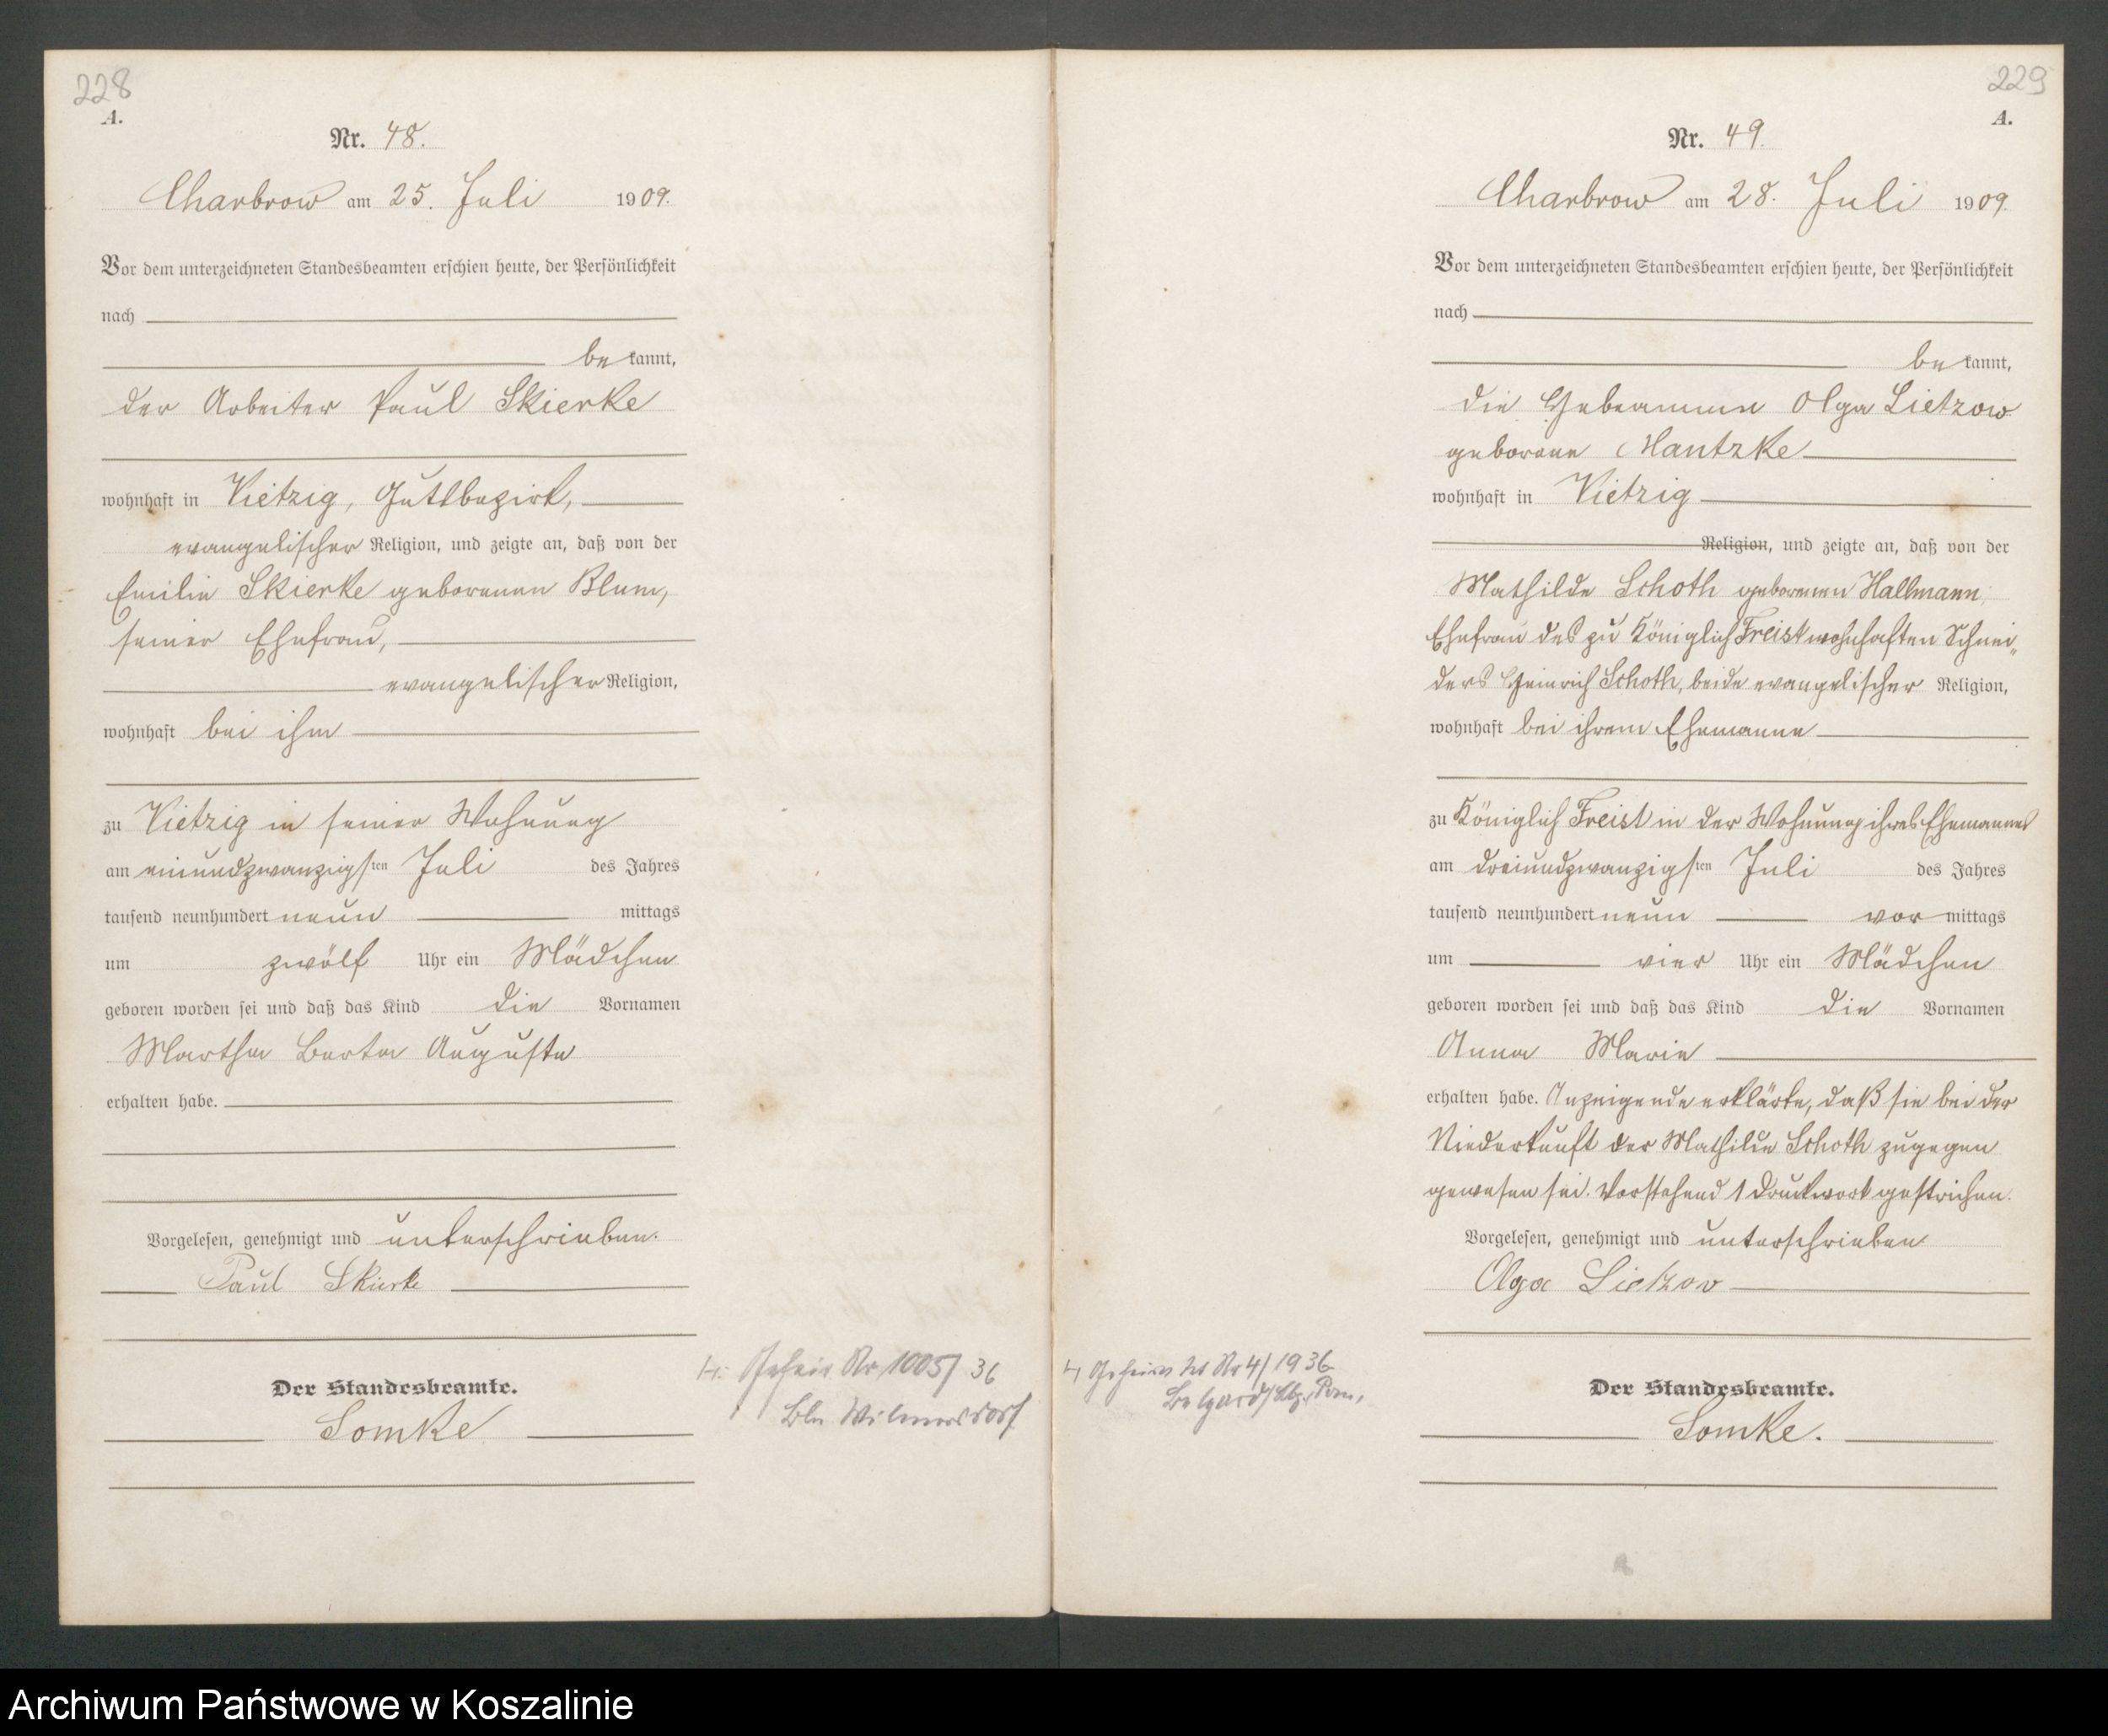 228
A.
Nr. 48.
Charbrow am 25. Juli 1909.
Vor dem unterzeichneten Standesbeamten erschien heute, der Persönlichkeit
nach
be kannt,
der Arbeiter Paul Skierke
wohnhaft in Vietzig, Gutsbezirk,
evangelischer Religion, und zeigte an, daß von der
Emilie Skierke geborenen Blum,
seiner Ehefrau,
evangelischer Religion,
wohnhaft bei ihm
zu Vietzig in seiner Wohnung
am einundzwanzigsten Juli des Jahres
tausend neunhundert neun mittags
um zwölf Uhr ein Mädchen
geboren worden sei und daß das Kind die Vornamen
Martha Berta Auguste
erhalten habe.
Vorgelesen, genehmigt und unterschrieben.
Paul Skierke
Der Standesbeamte.
Somke
Nr 1005/36
Bln Wilmersdorf
229
A.
Nr. 49.
Charbrow am 28. Juli 1909.
Vor dem unterzeichneten Standesbeamten erschien heute, der Persönlichkeit
nach
be kannt,
die Hebeamme Olga Lietzow
geborene Mantzke
wohnhaft in Vietzig
Religion, und zeigte an, daß von der
Mathilde Schoth geborenen Hallmann,
Ehefrau des zu Königlich Freist wohnhaften Schnei„
ders Heinrich Schoth, beide evangelischer Religion,
wohnhaft bei ihrem Ehemanne
zu Königlich Freist in der Wohnung ihres Ehemannes
am dreiundzwanzigsten Juli des Jahres
tausend neunhundert neun vor mittags
um vier Uhr ein Mädchen
geboren worden sei und daß das Kind die Vornamen
Anna Marie
erhalten habe. Anzeigende erklärte, daß sie bei der
Niederkunft der Mathilde Schoth zugegen
gewesen sei. Vorstehend 1 Druckwort gestrichen.
Vorgelesen, genehmigt und unterschrieben
Olga Lietzow
Der Standesbeamte.
Somke.
Nr 4/1936
Belgard Pom.
Archiwum Państwowe w Koszalinie